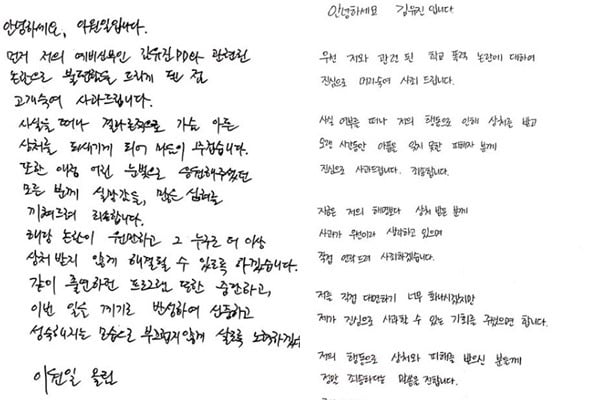 안녕하세요, 이원일입니다.
먼저 저의 예비신부인 김유진PD와 관련된
논란으로 불편함을 드리게 된 점
고개숙여 사과드립니다.
사실을 떠나 결과론적으로 가슴 아픈
상처를 되새기게 되어 마음이 무겁습니다.
또한 애정 어린 눈빛으로 응원해주셨던
모든 분께 실망감을, 많은 심려를
끼쳐드려 죄송합니다.
해당 논란이 원만하고 그 누구도 더 이상
상처받지 않게 해결될 수 있도록 하겠습니다.
같이 출연하던 프로그램 또한 중단하고,
이번 일을 계기로 반성하여 신중하고
성숙해지는 모습으로 부끄럽지않게 살도록 노력하겠
이원일 올림
안녕하세요 김유진 입니다
우선 저와 관련 된 학교 폭력 논란에 대하여
진심으로 머리숙여 사죄 드립니다.
사실 여부를 떠나 저의 행동으로 인해 상처를 받고
오랜 시간동안 아픔을 잊지 못한 피해자 분께
진심으로 사과드립니다. 죄송합니다.
지금은 저의 해명보다 상처 받은 분께
사과가 우선이라 생각하고 있으며
직접 연락드려 사죄하겠습니다.
저를 직접 대면하기 너무 화나시겠지만
제가 진심으로 사과할 수 있는 기회를 주셨으면 합니다.
저의 행동으로 상처와 피해를 받으신 분들께
정말 죄송하다는 말씀을 전합니다.